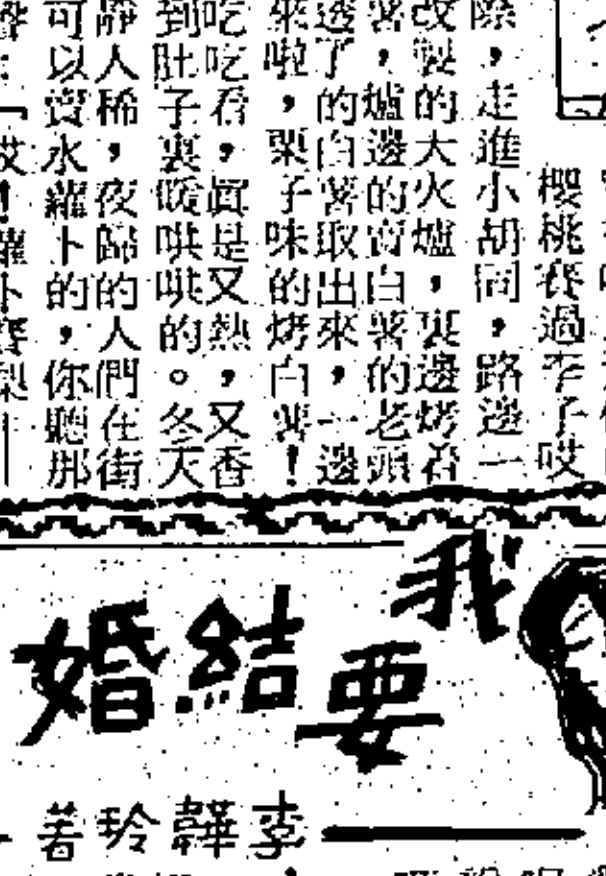 櫻桃賽過李子哎
際，走進小胡同，路邊一
改製的大火爐，裏邊烤着
薯，爐邊的賣白薯的老頭
透了的白薯取出來，一邊
來啦，栗子味的烤白薯！
吃吃着，眞是又熱，又香
到肚子裏暖哄哄的。冬天
靜人稀，夜歸的人們在街
可以賣水蘿卜的，你聽那
聲：「哎！蘿卜賽梨—
我要結婚
李韡玲著